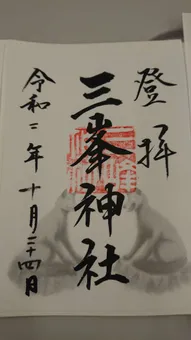 登拝
三峯神社
令和二年十月二十四日